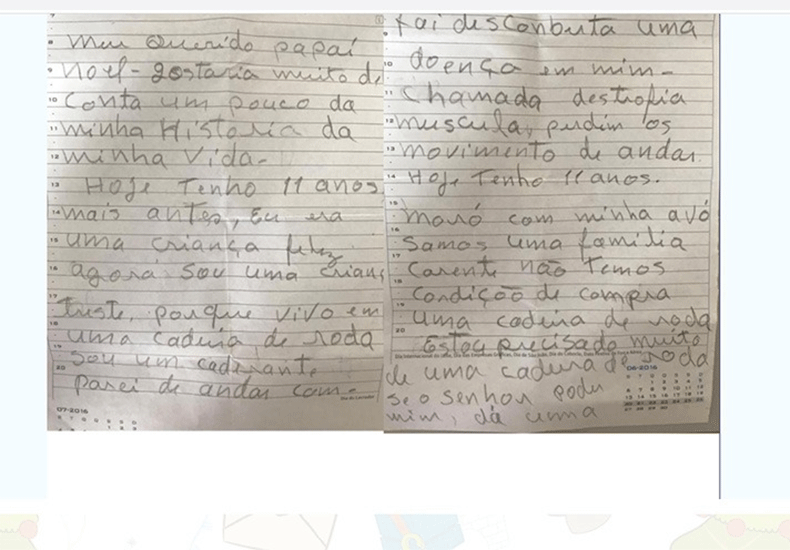 meu Querido papai
Noel - gostaria muito di
Conta um pouco da
minha Historia da
minha vida-
Hoje Tenho 11 anos
mais antes, Eu era
uma criança feliz
agora sou uma crian
triste, porque vivo em
uma cadeira de roda
Sou um cadeirante
Parei de andar com-
07-2016
fai desconbuta uma
doença em mim-
chamada destrofia
muscula, perdim os
movimento de andar
Hoje Tenho 11 anos.
moro com minha avó
samos uma familia
carente não Temos
condição de compra
uma cadeira de roda
Estou precisado muito
de uma cadeira de roda
se o senhor poder
mim, dá uma
06-2016